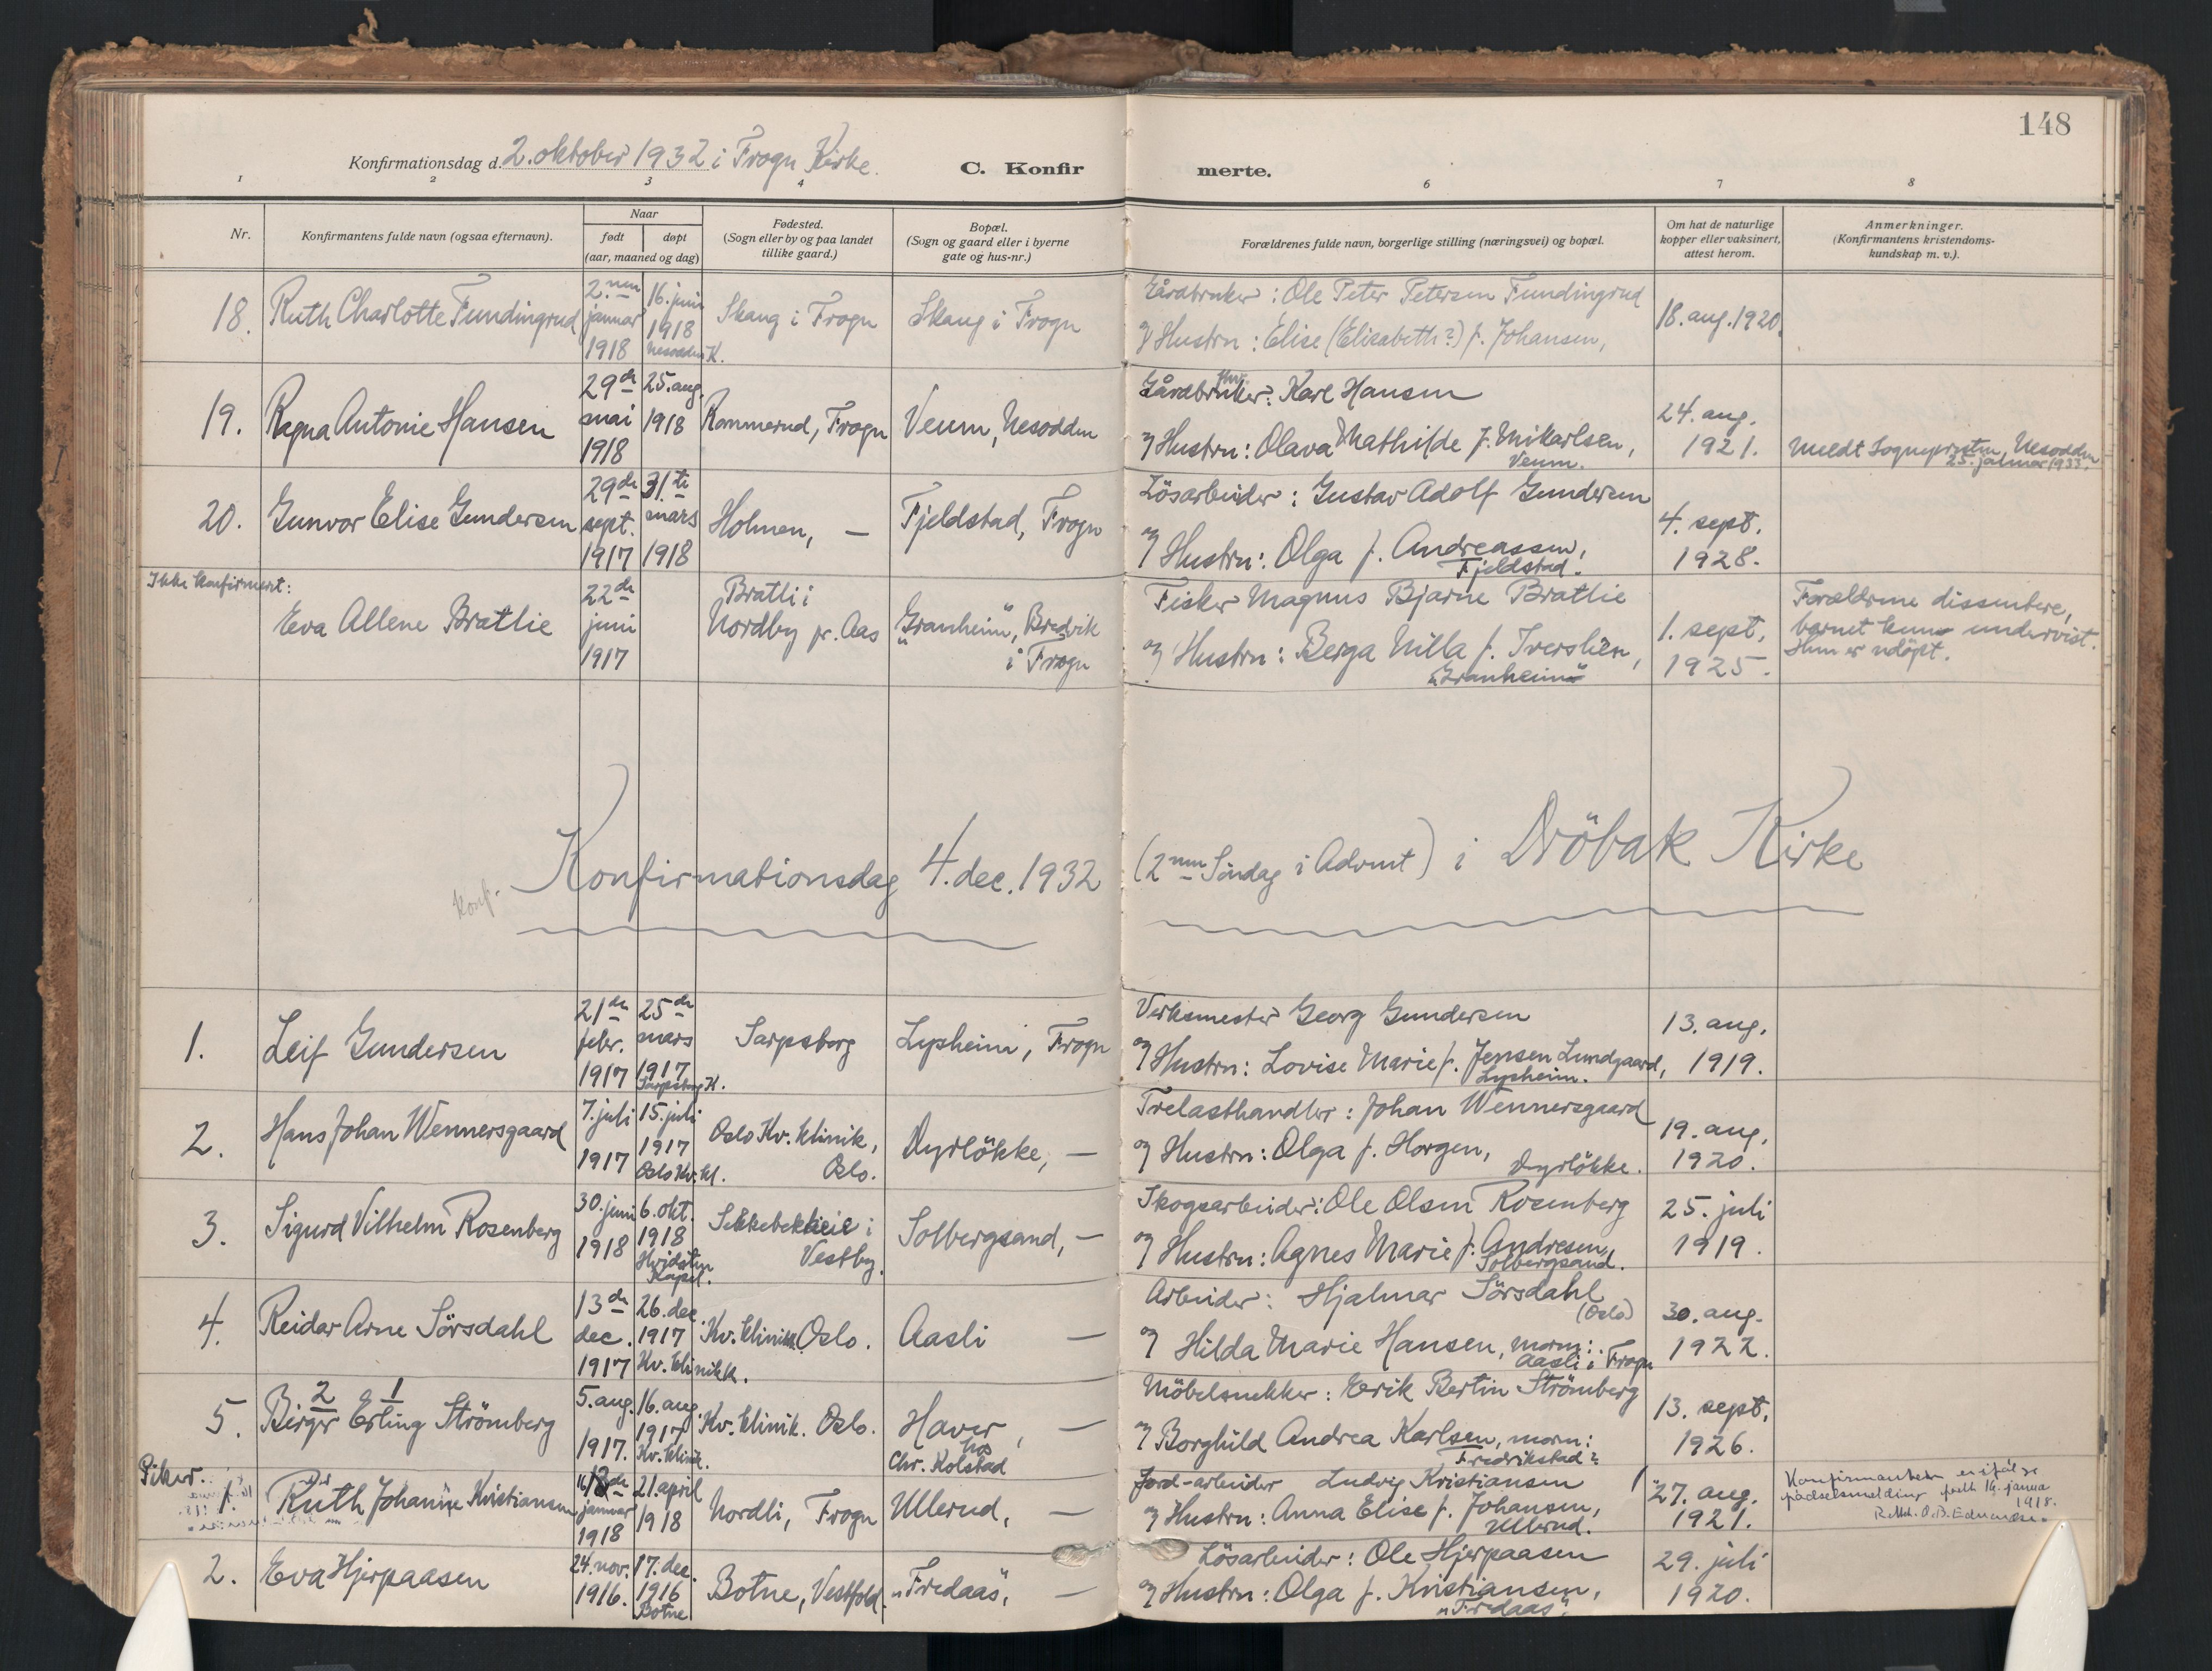 148
Konfirmationsdag d. 2. oktober 1932 i Frogn Kirke.
C. Konfirmerte.
1 2 3 4 6 7 8
Nr.
Konfirmantens fulde navn (ogsaa efternavn).
Naar
født
døpt
(aar, maaned og dag)
Fødested.
(Sogn eller by og paa landet
tillike gaard.)
Bopæl.
(Sogn og gaard eller i byerne
gate og hus-nr.)
Forældrenes fulde navn, borgerlige stilling (næringsvei) og bopæl.
Om hat de naturlige
kopper eller vaksinert,
attest herom.
Anmerkninger.
(Konfirmantens kristendoms-
kundskap m. v.).
18. Ruth Charlotte Fundingrud
2.nen
januar
1918
16. juni
1918
Nesodden K.
Skaug i Frogn
Skaug i Frogn
Gårdbruker: Ole Peter Petersen Fundingrud
og Hustru: Elise (Elisabeth?) f. Johansen,
18. aug. 1920.
19. Ragna Antonie Hansen
29de
mai
1918
25. aug.
1918
Rommerud, Frogn
Veum, Nesodden
Gårdbruker: Karl Hansen
og Hustru: Olava Mathilde f. Mikarlsen,
Veum.
24. aug.
1921.
Meldt Sogneprsten, Nesodden
25. januar 1933.
20. Gunvor Elise Gundersen
29de
sept.
1917
31.te
mars
1918
Holmen, —
Fjeldstad, Frogn
Lösarbeider: Gustav Adolf Gundersen
og Hustru: Olga f. Andreassen,
Fjeldstad.
4. sept.
1928.
Ikke konfirmert:
Eva Allene Bratlie
22de
juni
1917
Bratli i
Nordby pr. Aas
"Granheim", Bredvik
i Frogn
Fisker Magnus Bjarne Bratlie
og Hustru: Berga Nilla f. Iverslien,
"Granheim"
1. sept.
1925.
Forældrene dissentere,
barnet kun undervist.
Hun er udöpt.
Konf.
Konfirmationsdag 4. dec. 1932 (2nen Söndag i Advent) i Dröbak Kirke
1. Leif Gundersen
21de
febr.
1917
25de
mars
1917
Sarpsborg K.
Sarpsborg
Lysheim, Frogn
Verksmester Georg Gundersen
og Hustru: Lovise Marie f. Jensen Lundgaard,
Lysheim.
13. aug.
1919.
2. Hans Johan Wennersgaard
7. juli
1917
15. juli
1917
Oslo Kv. kl.
Oslo Kv. klinik,
Oslo.
Dyrlökke, —
Trelasthandler: Johan Wennersgaard
og Hustru: Olga f. Horgen,
Dyrlökke.
19. aug.
1920.
3. Sigurd Vilhelm Rosenberg
30. juni
1918
6. okt.
1918
Hvidsten
Kapel.
Sekkebekkeie i
Vestby.
Solbergsand, —
Skogsarbeider: Ole Olsen Rosenberg
og Hustru: Agnes Marie f. Andresen,
Solbergsand.
25. juli
1919.
4. Reidar Arne Sörsdahl
13de
dec.
1917
26. dec.
1917
Kv. klinikk.
Kv. klinikk Oslo.
Aasli —
Arbeider: Hjalmar Sörsdahl
(Oslo)
og Hilda Marie Hansen, morm:
Aasli i Frogn
30. aug.
1922.
2 1
5. Birger Erling Strömberg
5. aug.
1917.
16. aug.
1917
Kv. klinik.
Kv. klinik. Oslo.
Haver, —
hos
Chr. Kolstad
Möbelsnekker: Erik Bertin Strömberg
og Borghild Andrea Karlsen, morm:
Fredrikstad?
13. sept.
1926.
Piker.
1. Ruth Johanne Kristiansen
januar
1918
21. april
1918
Nordli, Frogn
Ullerud, —
Jord-arbeider Ludvig Kristiansen
og Hustru: Anna Elise f. Johansen,
Ullerud.
27. aug.
1921.
Konfirmanten er ifølge
fødselsmelding født 16. januar
1918.
2. Eva Hjerpaasen
24. nov.
1916.
17. dec.
1916
Botne
Botne, Vestfold.
"Fredaas", —
Lösarbeider: Ole Hjerpaasen
og Hustru: Olga f. Kristiansen,
"Fredaas".
29. juli
1920.